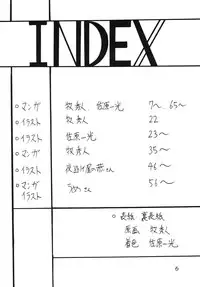 INDEX
○マンガ 牧秀人、佐原一光 7～、65～
○イラスト 牧秀人 22
○イラスト 佐原一光 23～
○マンガ 牧秀人 35～
○イラスト 夜明け屋の さん 46～
○マンガ イラスト さん 56～
○表紙 裏表紙
原画 牧秀人
着色 佐原一光
6